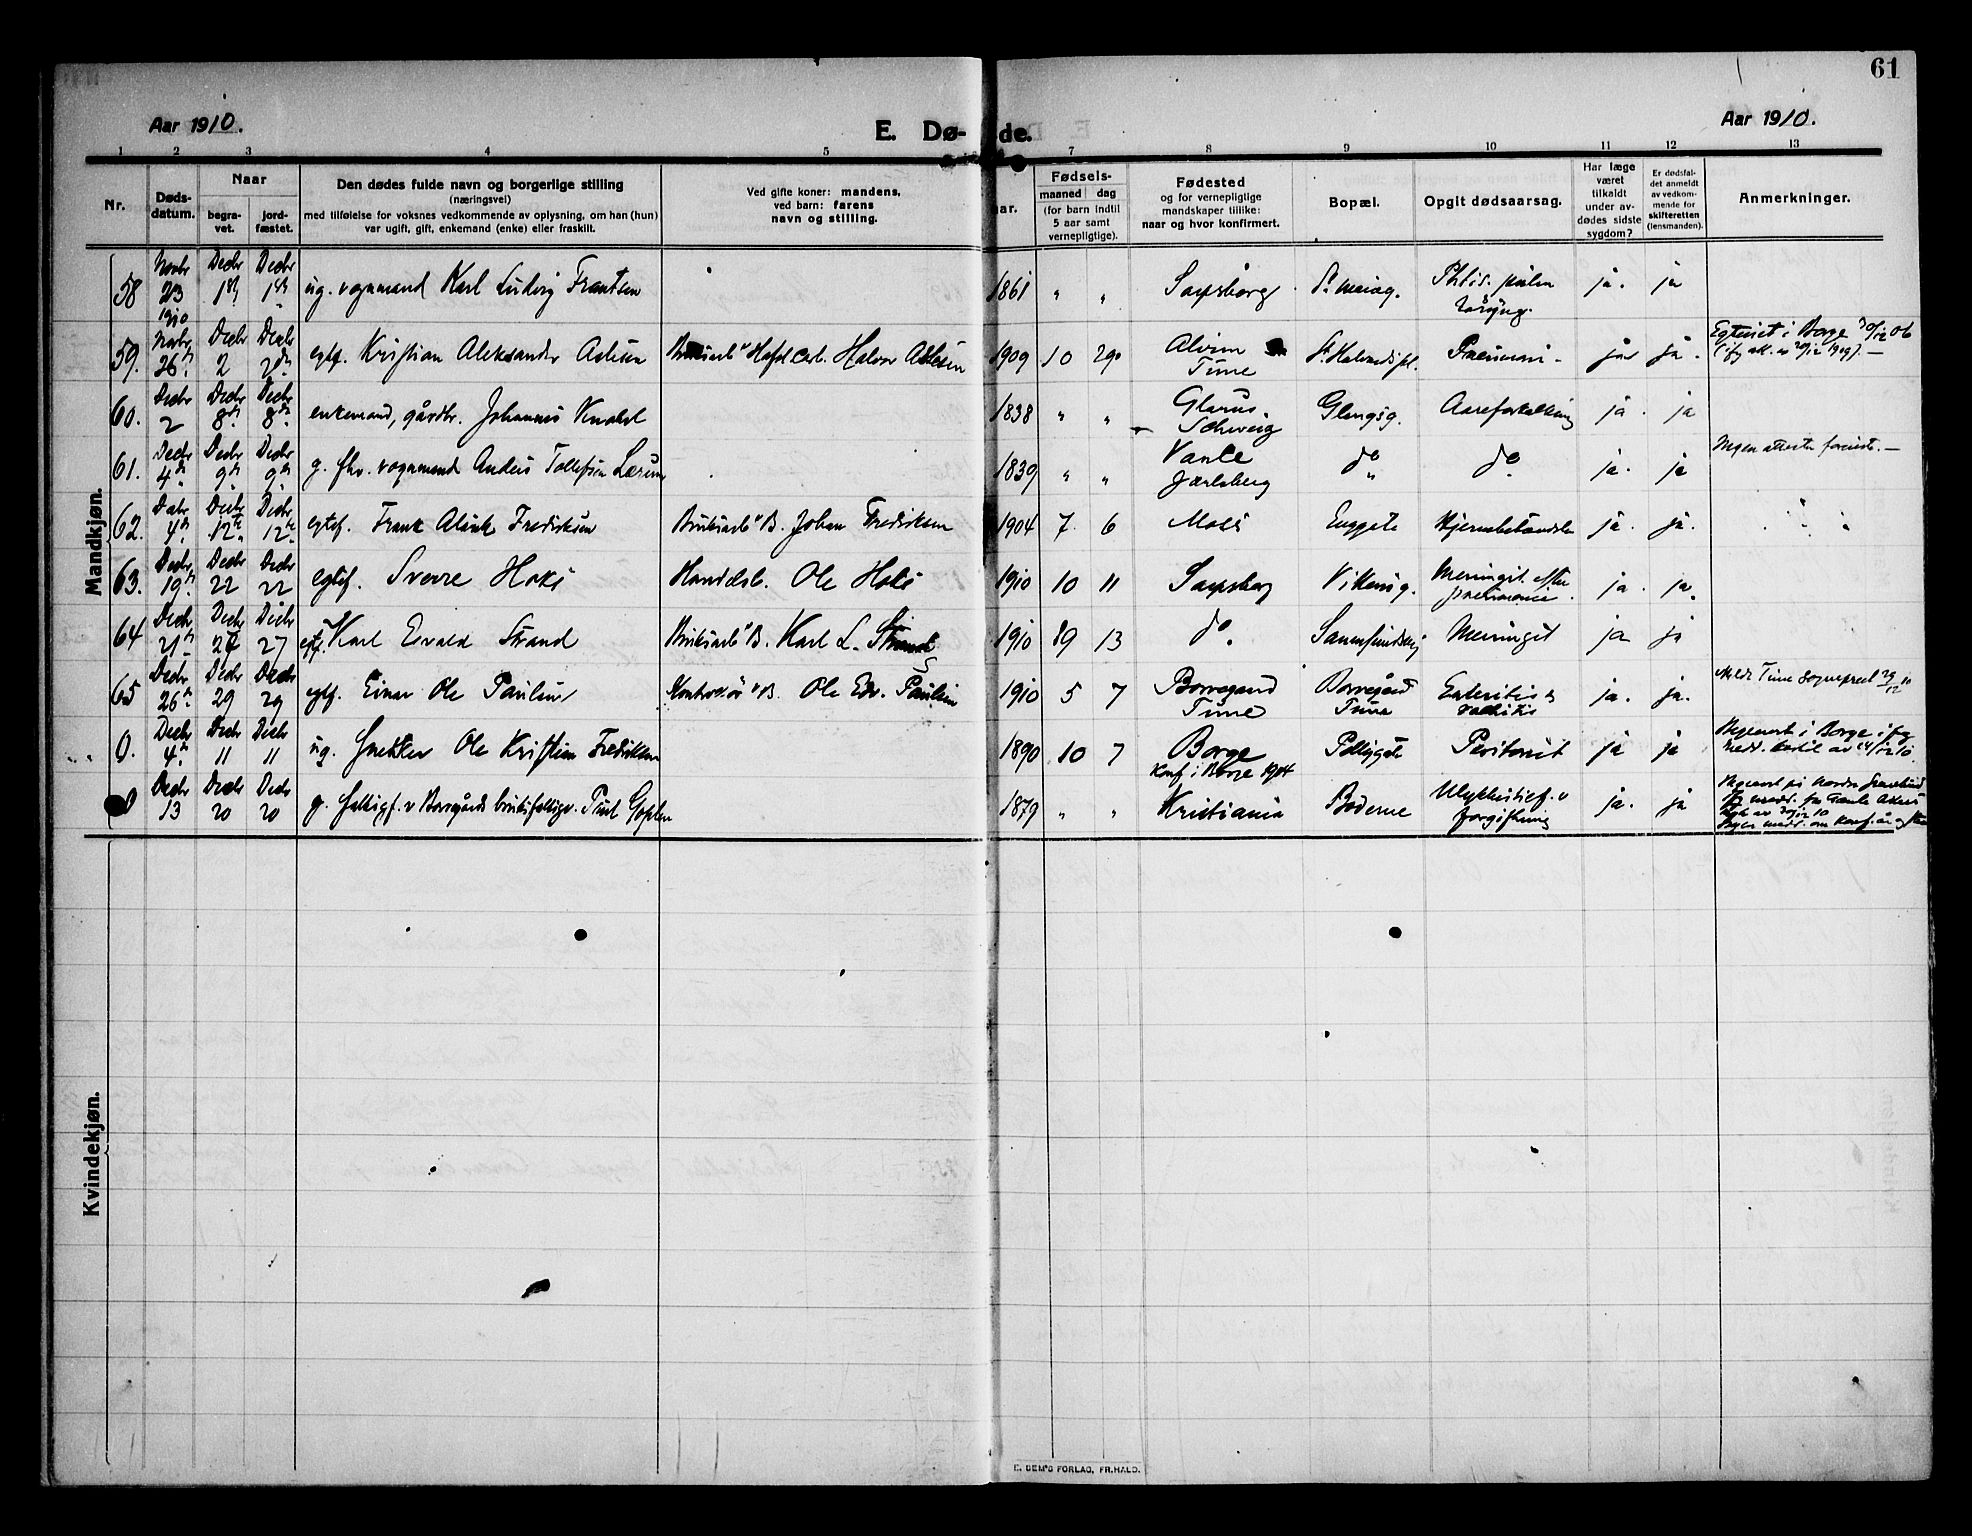 61
Aar 1910.
E. Dø- de.
Aar 1910.
1 2 3 4 5 7 8 9 10 11 12 13
Nr.
Døds-
datum.
Naar
begra-
vet.
jord-
fæstet.
Den dødes fulde navn og borgerlige stilling
(næringsvei)
med tilføielse for voksnes vedkommende av oplysning, om han (hun)
var ugift, gift, enkemand (enke) eller fraskilt.
Ved gifte koner: mandens,
ved barn: farens
navn og stilling.
aar.
Fødsels-
maaned dag
(for barn indtil
5 aar samt
vernepligtige).
Fødested
og for vernepligtige
mandskaper tillike:
naar og hvor konfirmert.
Bopæl.
Opgit dødsaarsag.
Har læge
været
tilkaldt
under av-
dødes sidste
sygdom?
Er dødsfal-
det anmeldt
av vedkom-
mende for
skifteretten
(lensmanden).
Anmerkninger.
Mandkjøn.
58 Novbr 23 1910 Decbr 1ste Decbr 1ste ug. vognmand Karl Ludvig Frantsen 1861 " " Sarpsborg St. Mariag. Phtis. pulm ja. ja
59. Novbr 26. Decbr 2 Decbr 2den egtf. Kristian Aleksander Aslesen Bruksarb. v Hafsl. Carb. Halvor Aslesen 1909 10 29 Alvim Tune Pneumoni ja ja. Egteviet i Borge 30/12 06
60. Decbr 2 Decbr 8de Decbr 8de enkemand, gårdbr. Johannes 1838 " " Glarus. Schweiz Glengsg. Aareforkalkning ja. ja
61. Decbr 4de Decbr 9de Decbr 9de g. fhv. vognmand Anders Tollefsen Lærum 1839 " " Vaale Jarlsberg do do ja. ja Ingen attester
62. Decbr 4de Decbr 12te. Decbr 12te. egtef. Frank Fredriksen Bruksarb v B. Johan Fredriksen 1904 7. 6 Moss Enggata ja. ja. " " "
63. Decbr 19de Decbr 22 Decbr 22 egtef. Sverre Holes Handelsb. Ole Holes 1910 10 11 Sarpsborg Vikensg. Meningit. efter pneumonie. ja. ja.
64 Decbr 21de Decbr 27 Decbr 27 egtf. Karl Evald Strand Bruksarb v B. Karl L. Strand 1910 9 13 do. Meningit ja ja
65 Decbr 26de. Decbr 29 Decbr 29 egtf. Einar Ole Paulsen Kontrolør v B. Ole Edv. Paulsen 1910 5 7 Borregaard Tune Borregård Tune Enteritis & rachitis ja. ja. Meldt Tune Sogneprest 29/12 10
0. Decbr 4de Decbr 11 Decbr 11 ug. Snekker Ole Kristian Fredriksen 1890 10 7 Borge konf. i Borge 1904 Peritonit ja ja Begravet i Borge
0 Decbr 13 Decbr 20 Decbr 20 g. v Borregårds 1879 " " Kristiania Boderne Ulykkestilf. v forgiftning ja. ja
Kvindekjøn.
E. SEM'S FORLAG, FR.HALD.